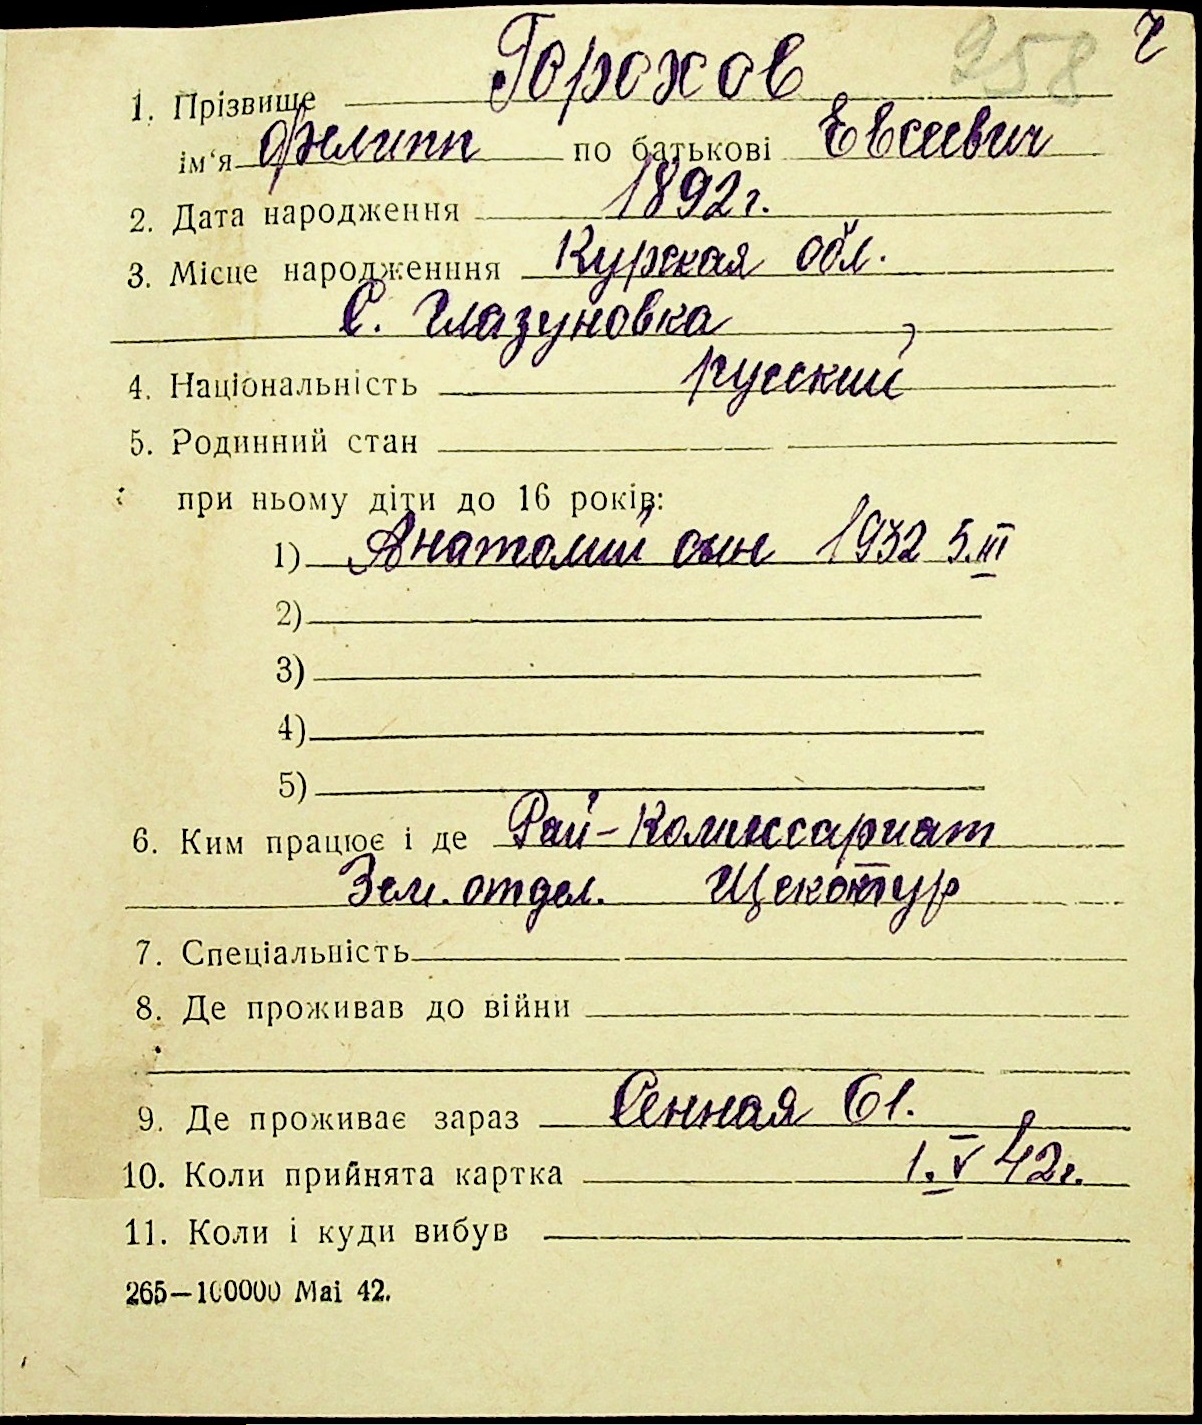 258 г
1. Прізвище Горохов
ім'я Филипп по батькові Евсеевич
2. Дата народження 1892 г.
3. Місце народженння Курская обл.
С. Глазуновка
4. Національність русский
5. Родинний стан
при ньому діти до 16 років:
1) Анатолий сын 1932 5.III
2)
3)
4)
5)
6. Ким працює і де Рай-Комиссариат
Зем. отдел. Щекотур
7. Спеціальність
8. Де проживав до війни
9. Де проживає зараз Сенная 61.
10. Коли прийнята картка 1.V 42г.
11. Коли і куди вибув
265—100000 Маі 42.